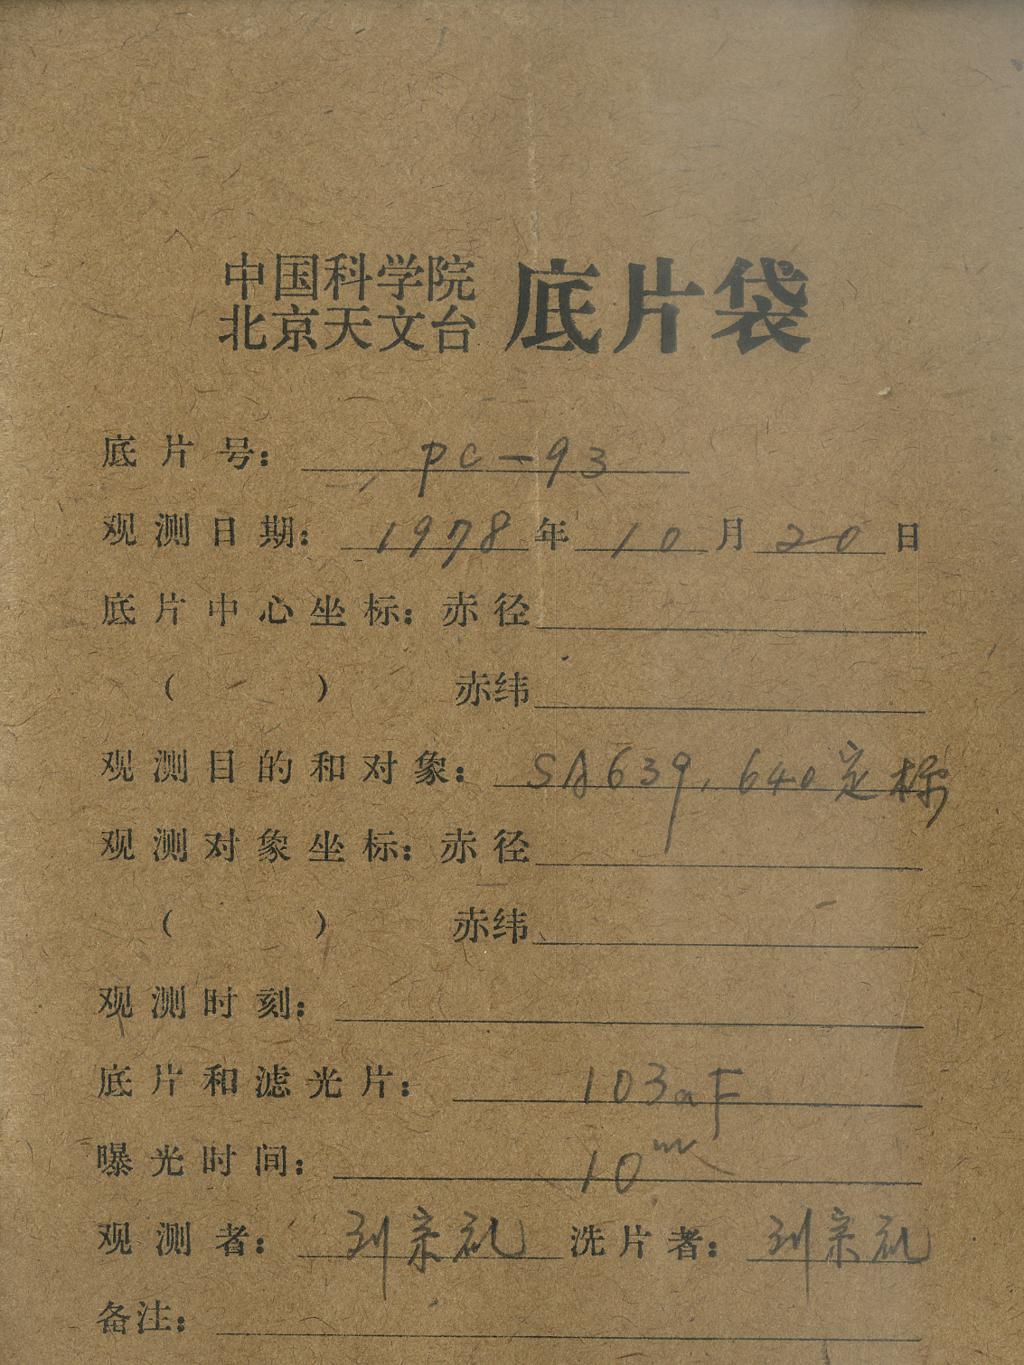 中国科学院
北京天文台
底片袋
底片号: PC-93
观测日期: 1978年10月20日
底片中心坐标: 赤径
( ) 赤纬
观测目的和对象: SA639, 640定标
观测对象坐标: 赤径
( ) 赤纬
观测时刻:
底片和滤光片: 103aF
曝光时间: 10m
观测者: 刘宗礼 洗片者: 刘宗礼
备注: